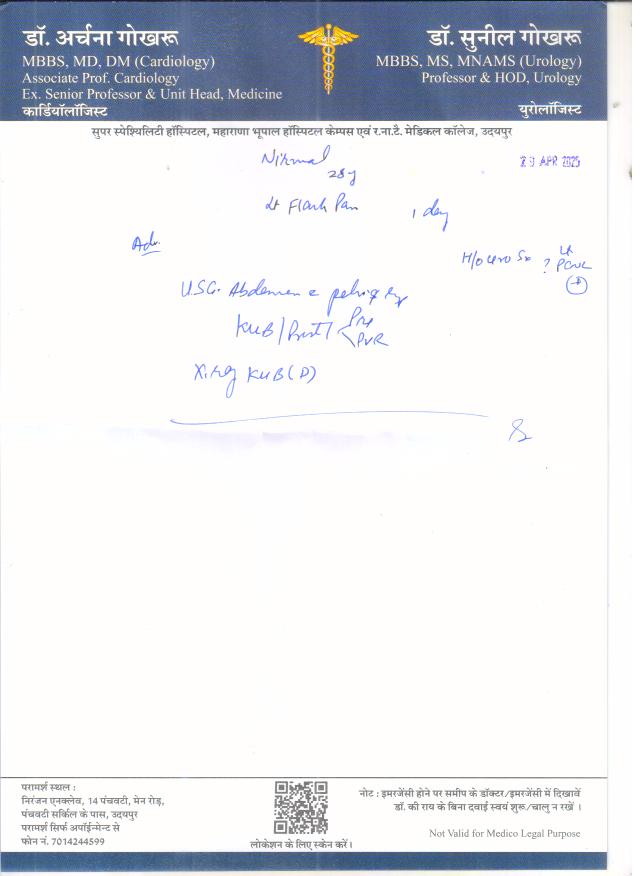 डॉ. अर्चना गोखरू
MBBS, MD, DM (Cardiology)
Associate Prof. Cardiology
Ex. Senior Professor & Unit Head, Medicine
कार्डियॉलॉजिस्ट
डॉ. सुनील गोखरू
MBBS, MS, MNAMS (Urology)
Professor & HOD, Urology
युरोलॉजिस्ट
सुपर स्पेश्यिलिटी हॉस्पिटल, महाराणा भूपाल हॉस्पिटल केम्पस एवं र.ना.टै. मेडिकल कॉलेज, उदयपुर
Nirmal
28y
APR 2025
Lt Flank Pain 1 day
Adv.
H/o
PCNL
U.S.G. Abdomen
KUB/Prost/ Pre
PVR
X.ray KUB (D)
परामर्श स्थल :
निरंजन एनक्लेव, 14 पंचवटी, मेन रोड़,
पंचवटी सर्किल के पास, उदयपुर
परामर्श सिर्फ अपॉईन्मेन्ट से
फोन नं. 7014244599
लोकेशन के लिए स्केन करें।
नोट : इमरजेंसी होने पर समीप के डॉक्टर/इमरजेंसी में दिखावें
डॉ. की राय के बिना दवाई स्वयं शुरू/चालु न रखें ।
Not Valid for Medico Legal Purpose